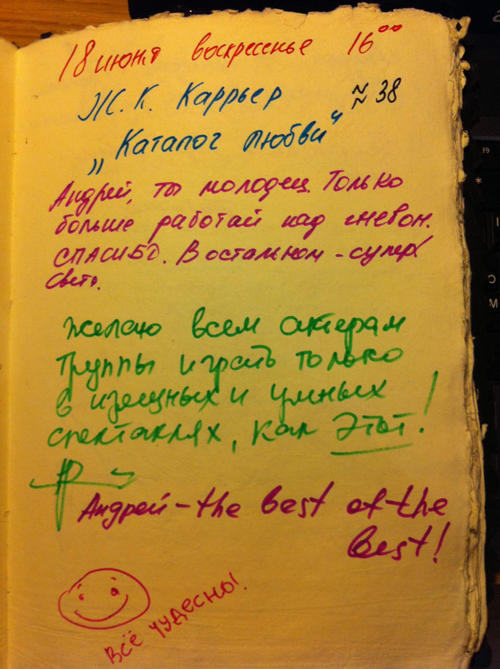 18 июня воскресенье 16⁰⁰
Ж. К. Каррьер ≈ 38
„Каталог любви"
Андрей, ты молодец. Только
больше работай над гневом.
СПАСИБО. В остальном - супер
Света.
Желаю всем актерам
труппы играть только
в изящных и умных
спектаклях, как этот!
Андрей - the best of the
best!
Всё чудесны!